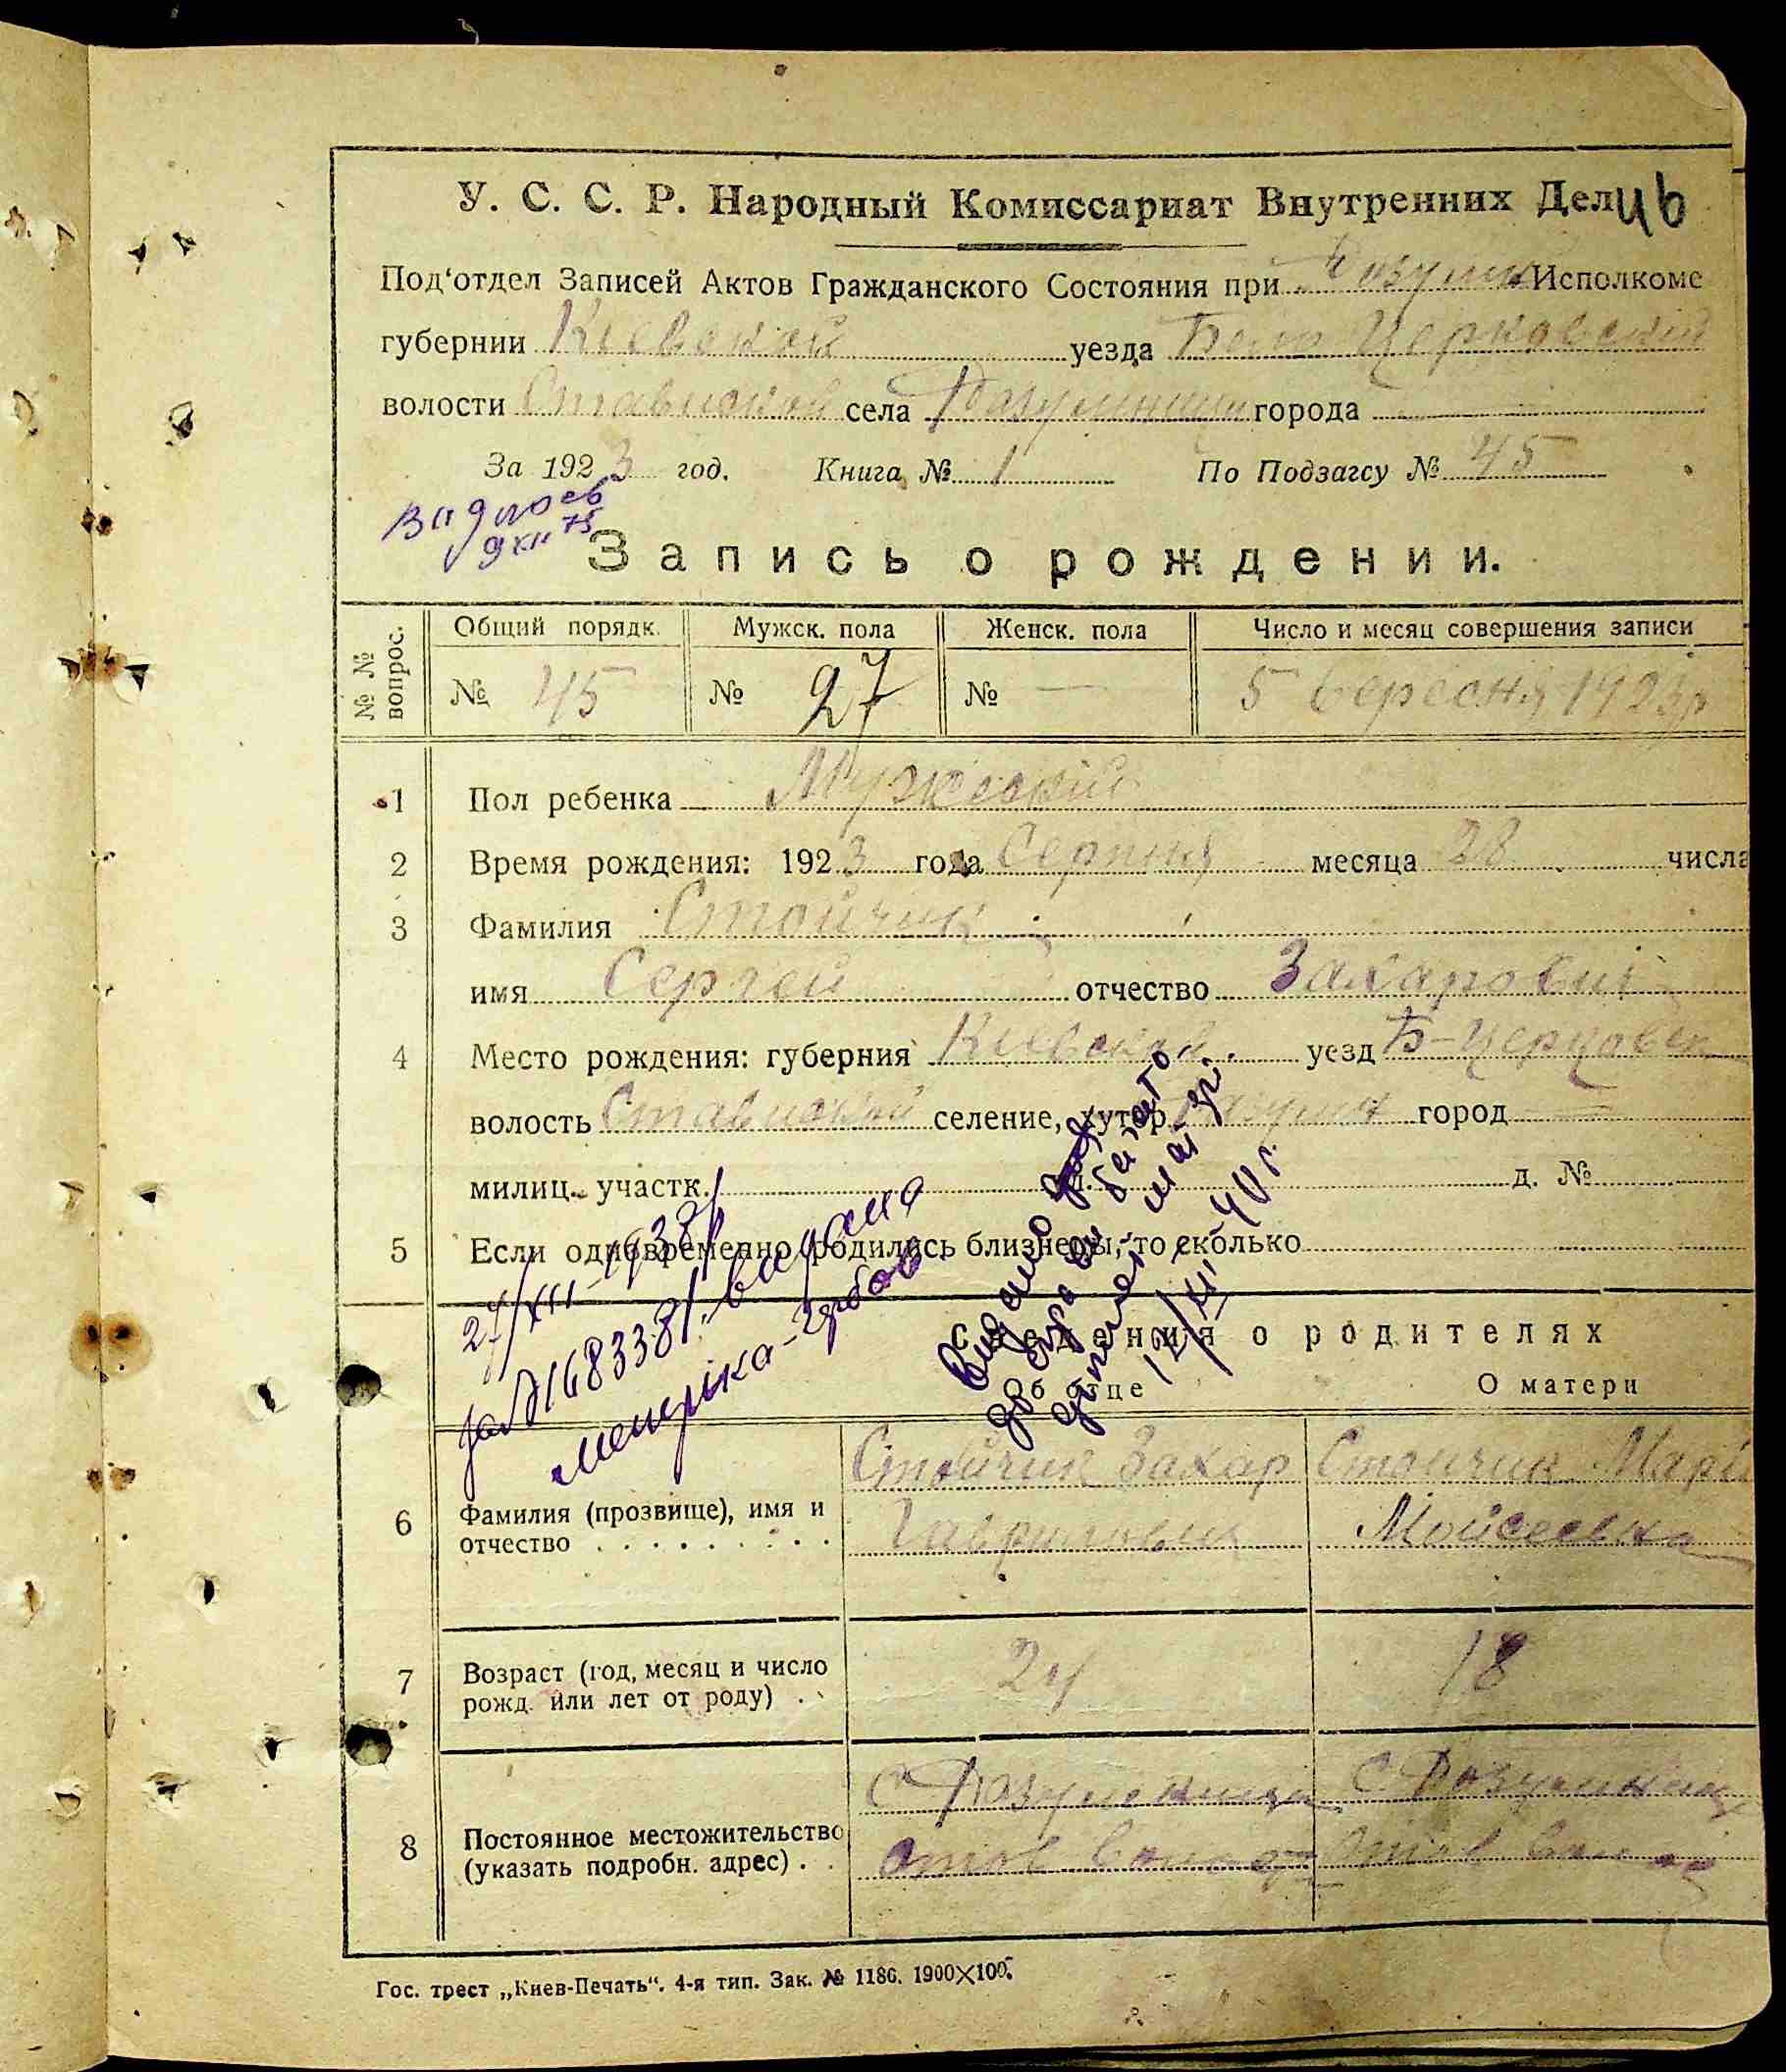 У. С. С. Р. Народный Комиссариат Внутренних Дел 46
Под‘отдел Записей Актов Гражданского Состояния при Исполкоме
губернии Киевской уезда Бело Церковский
волости Ставиской села города —
За 1923 год. Книга № 1 По Подзагсу № 45
9 XII 75
Запись о рождении.
№ № вопрос. Общий порядк. Мужск. пола Женск. пола Число и месяц совершения записи
№ 45 № 27 № — 5 вересня 1923 р
1 Пол ребенка Мужеский
2 Время рождения: 1923 года Серпня месяца 28 числа
3 Фамилия Стойчик
имя Сергей отчество Захарович
4 Место рождения: губерния Киевской уезд Б-Церковск
волость Ставиской селение, хутор город —
милиц. участк. д. №
5 Если одновременно родились близнецы, то сколько
27/XII-1938р
за № 168338/. видана
метріка
Видано
12/III 40 г.
Сведения о родителях
Об отце О матери
6 Фамилия (прозвище), имя и отчество . . . . . . . . . .
Стойчик Захар Стойчик Марія
Гаврилович Мойсеевна
7 Возраст (год, месяц и число рожд. или лет от роду) . .
24 18
8 Постоянное местожительство (указать подробн. адрес) . .
с с
Став Став
Гос. трест „Киев-Печать“. 4-я тип. Зак. № 1186. 1900×100.